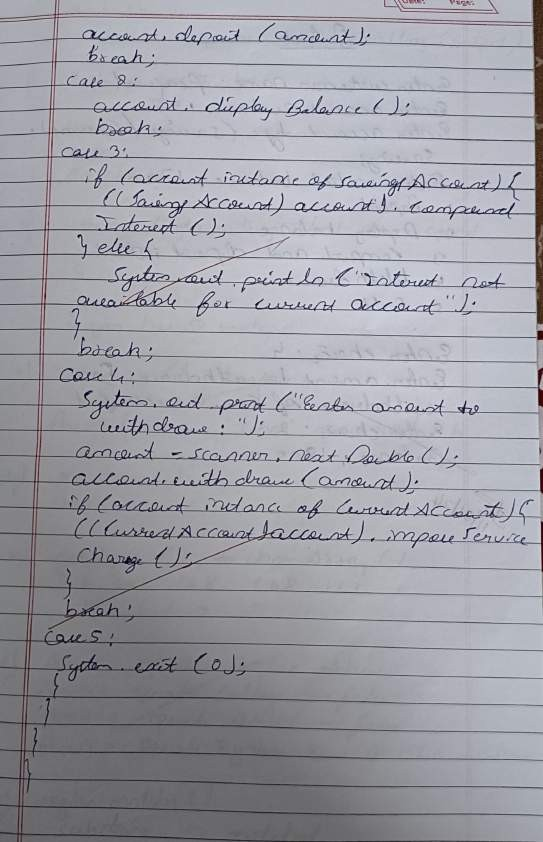 Page:
account. deposit (amount);
break;
case 2:
account. display Balance ();
break;
case 3:
if (account instance of savings Account) {
((Savings Account) account). Compound
Interest ();
} else {
System. out. println ("Interest not
available for current account");
}
break;
case 4:
System. out. print ("Enter amount to
withdraw : ");
amount = scanner. next Double ();
account. withdraw (amount);
if (account instance of Current Account) {
((Current Account) account). impose Service
Charge ();
}
break;
case 5:
System. exit (0);
}
}
}
}